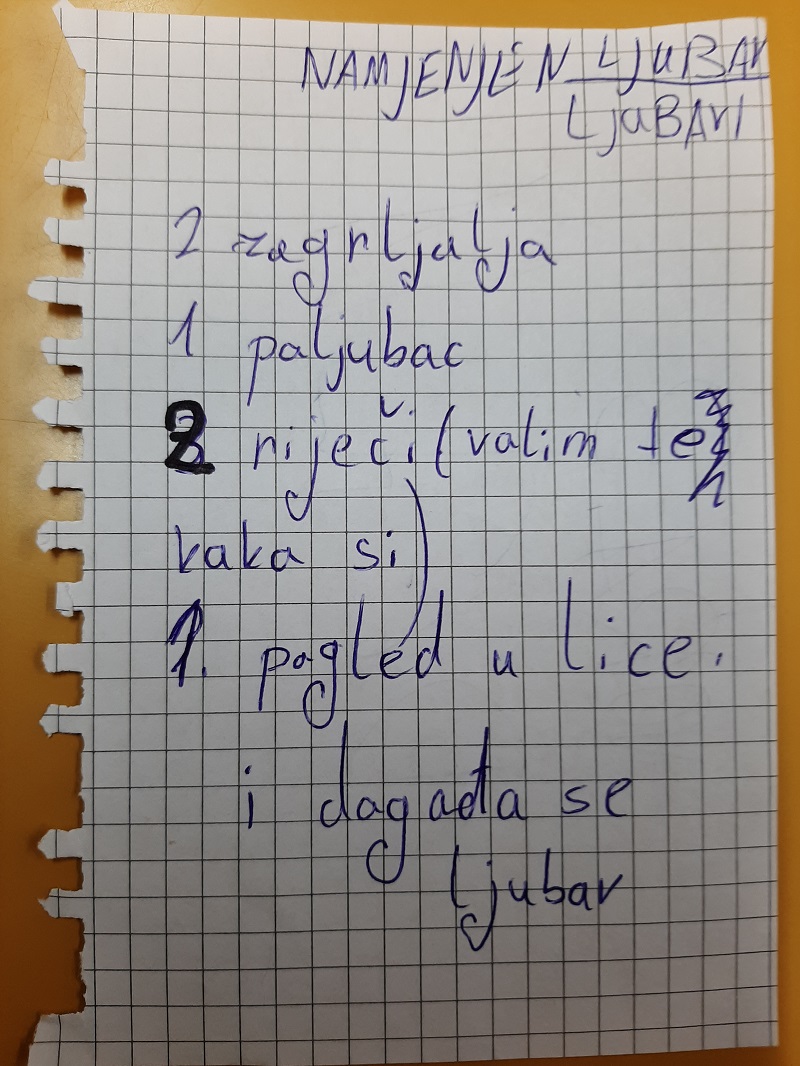 NAMJENJEN LJUBAV
LJUBAVI
2 zagrljalja
1 poljubac
2 riječi (volim te
kako si)
1. pogled u lice.
i događa se
ljubav